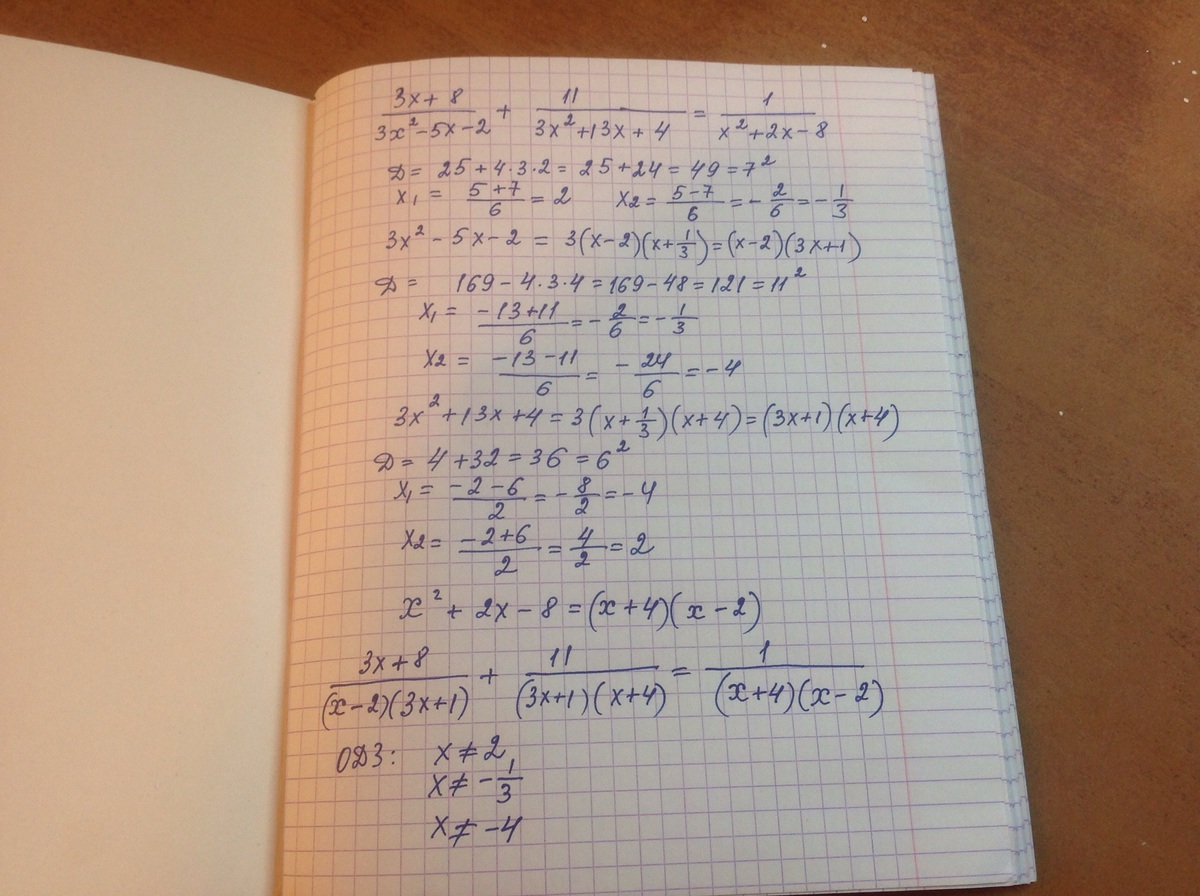 (3x + 8)/(3x² - 5x - 2) + 11/(3x² + 13x + 4) = 1/(x² + 2x - 8)
D = 25 + 4·3·2 = 25 + 24 = 49 = 7²
x₁ = (5 + 7)/6 = 2 x₂ = (5 - 7)/6 = - 2/6 = - 1/3
3x² - 5x - 2 = 3(x - 2)(x + 1/3) = (x - 2)(3x + 1)
D = 169 - 4·3·4 = 169 - 48 = 121 = 11²
x₁ = (-13 + 11)/6 = - 2/6 = - 1/3
x₂ = (-13 - 11)/6 = - 24/6 = -4
3x² + 13x + 4 = 3(x + 1/3)(x + 4) = (3x + 1)(x + 4)
D = 4 + 32 = 36 = 6²
x₁ = (-2 - 6)/2 = - 8/2 = -4
x₂ = (-2 + 6)/2 = 4/2 = 2
x² + 2x - 8 = (x + 4)(x - 2)
(3x + 8)/((x - 2)(3x + 1)) + 11/((3x + 1)(x + 4)) = 1/((x + 4)(x - 2))
ОДЗ: x ≠ 2
x ≠ - 1/3
x ≠ -4